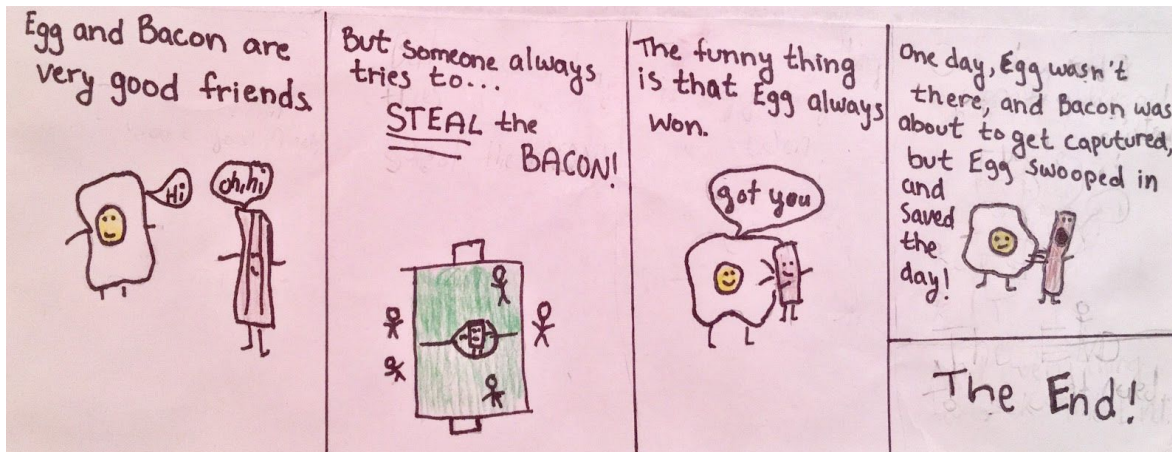 Egg and Bacon are
very good friends.
Hi
oh, hi
But someone always
tries to...
STEAL the
BACON!
The funny thing
is that Egg always
won.
got you
One day, Egg wasn't
there, and Bacon was
about to get caputured,
but Egg swooped in
and
saved
the
day!
The End!